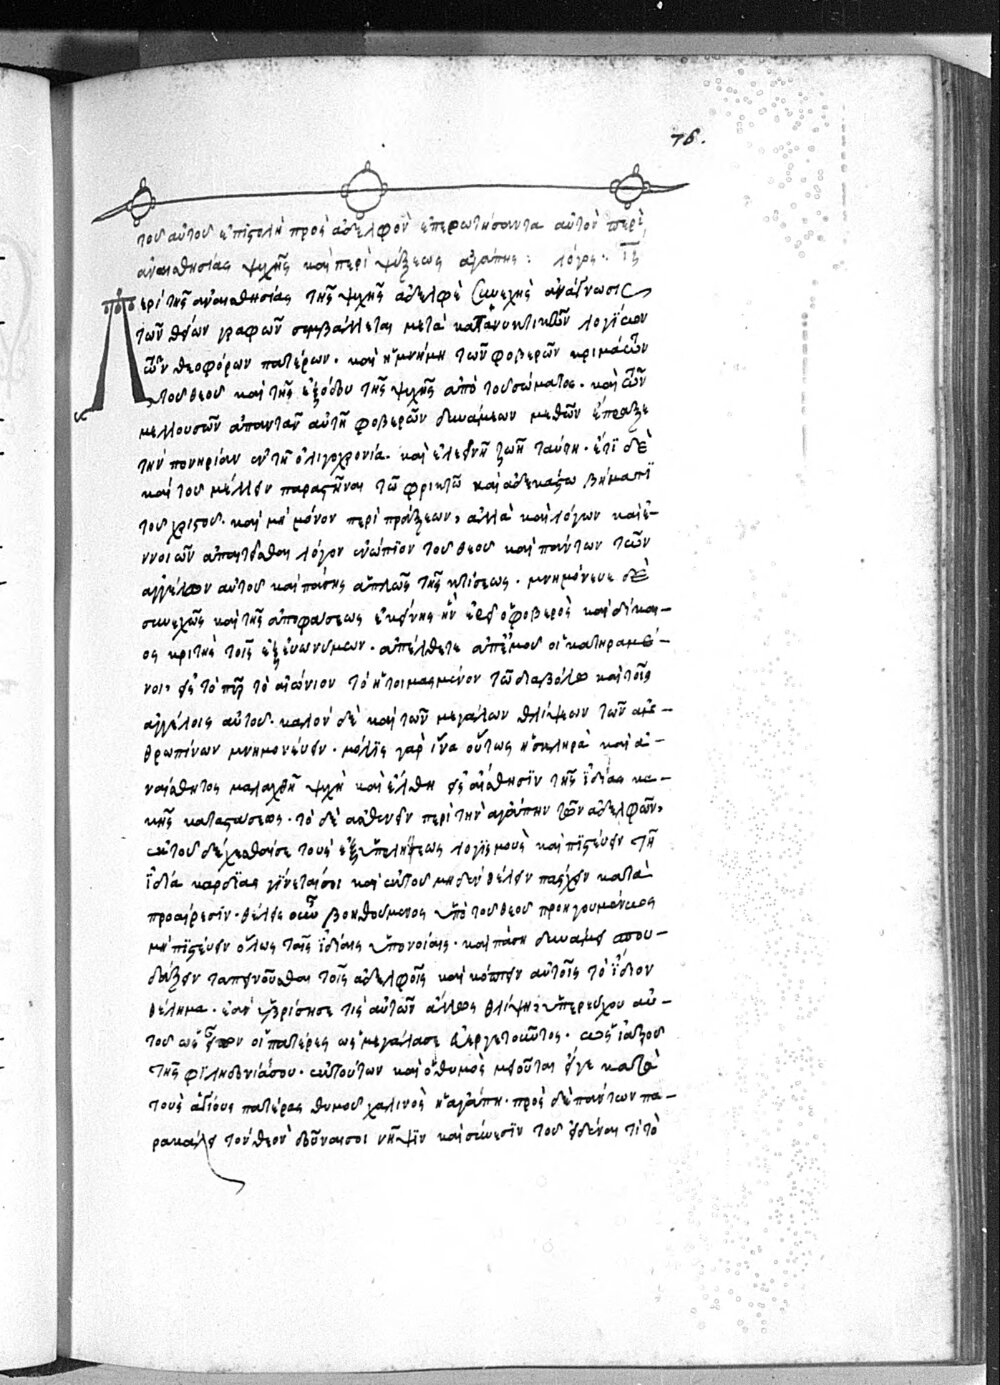 76.
τοῦ αὐτοῦ ἐπιστολὴ πρὸς ἀδελφὸν ἐπερωτήσαντα αὐτὸν περὶ
ἀναισθησίας ψυχῆς καὶ περὶ ψύξεως ἀγάπης: λόγος
Περὶ τῆς ἀναισθησίας τῆς ψυχῆς ἀδελφὲ συνεχὴς ἀνάγνωσις
τῶν θείων γραφῶν συμβάλλεται μετὰ κατανυκτικῶν λογίων
τῶν θεοφόρων πατέρων· καὶ ἡ μνήμη τῶν φοβερῶν κριμάτων
τοῦ θεοῦ καὶ τῆς ἐξόδου τῆς ψυχῆς ἀπὸ τοῦ σώματος· καὶ τῶν
μελλουσῶν ἀπαντᾶν αὐτῇ φοβερῶν δυνάμεων μεθῶν ἔπραξε
τὴν πονηρίαν ἐν τῇ ὀλιγοχρονία· καὶ ἐλεεινῇ ζωῇ ταύτη· ἔτι δὲ
καὶ τοῦ μέλλειν παραστῆναι τῶ φρικτῶ καὶ ἀδεκάστω βήματι
τοῦ χριστοῦ· καὶ μὴ μόνον περὶ πράξεων, ἀλλὰ καὶ λόγων καὶ ἐ-
ννοιῶν ἀπαιτεῖσθαι λόγον ἐνώπιον τοῦ θεοῦ καὶ πάντων τῶν
ἀγγέλων αὐτοῦ καὶ πάσης ἁπλῶς τῆς κτίσεως· μνημόνευε δὲ
συνεχῶς καὶ τῆς ἀποφάσεως ἐκείνης ἣν ἐρεῖ ὁ φοβερὸς καὶ δίκαι-
ος κριτὴς τοῖς ἐξ εὐωνύμων· ἀπέλθετε ἀπ' ἐμοῦ οἱ κατηραμέ-
νοι, εἰς τὸ πῦρ τὸ αἰώνιον τὸ ἡτοιμασμένον τῶ διαβόλω καὶ τοῖς
ἀγγέλοις αὐτοῦ· καλὸν δὲ καὶ τῶν μεγάλων θλίψεων τῶν ἀν-
θρωπίνων μνημονεύειν· μόλις γὰρ ἵνα οὕτως ἡ σκληρὰ καὶ ἀ-
ναίσθητος μαλαχθῆ ψυχὴ καὶ ἔλθη εἰς αἴσθησιν τῆς ἰδίας κα-
κῆς καταστάσεως· τὸ δὲ ἀσθενεῖν περὶ τὴν ἀγάπην τῶν ἀδελφῶν,
ἐκ τοῦ δέχεσθαί σε τοὺς ἐξ ὑπολήψεως λογισμοὺς καὶ πιστεύειν τῇ
ἰδία καρδίας γίνεταί σοι καὶ ἐκ τοῦ μηδὲν θέλειν πάσχειν κατὰ
προαίρεσιν· θέλεις οὖν βοηθούμενος ὑπὸ τοῦ θεοῦ προηγουμένως
μὴ πιστεύειν ὅλως ταῖς ἰδίαις ὑπονοίαις· καὶ πάση δυνάμει σπου-
δάζειν ταπεινοῦσθαι τοῖς ἀδελφοῖς καὶ κόπτειν αὐτοῖς τὸ ἴδιον
θέλημα· ἐὰν ὑβρίσησέ τις αὐτῶν ἄλλως θλίψη, ὑπερεύχου αὐ-
τοῦ ὡς εἶπον οἱ πατέρες ὡς μεγάλα σε εὐεργετοῦντος· ὡς ἰατροῦ
τῆς φιληδονίας σου· ἐκ τούτων καὶ ὁ θυμὸς μειοῦται εἴγε κατὰ
τοὺς ἁγίους πατέρας θυμοῦ χαλινὸς ἡ ἀγάπη· πρὸς δὲ πάντων πα-
ρακάλει τὸν θεὸν δοῦναί σοι νῆψιν καὶ σύνεσιν τοῦ εἰδέναι τί τὸ